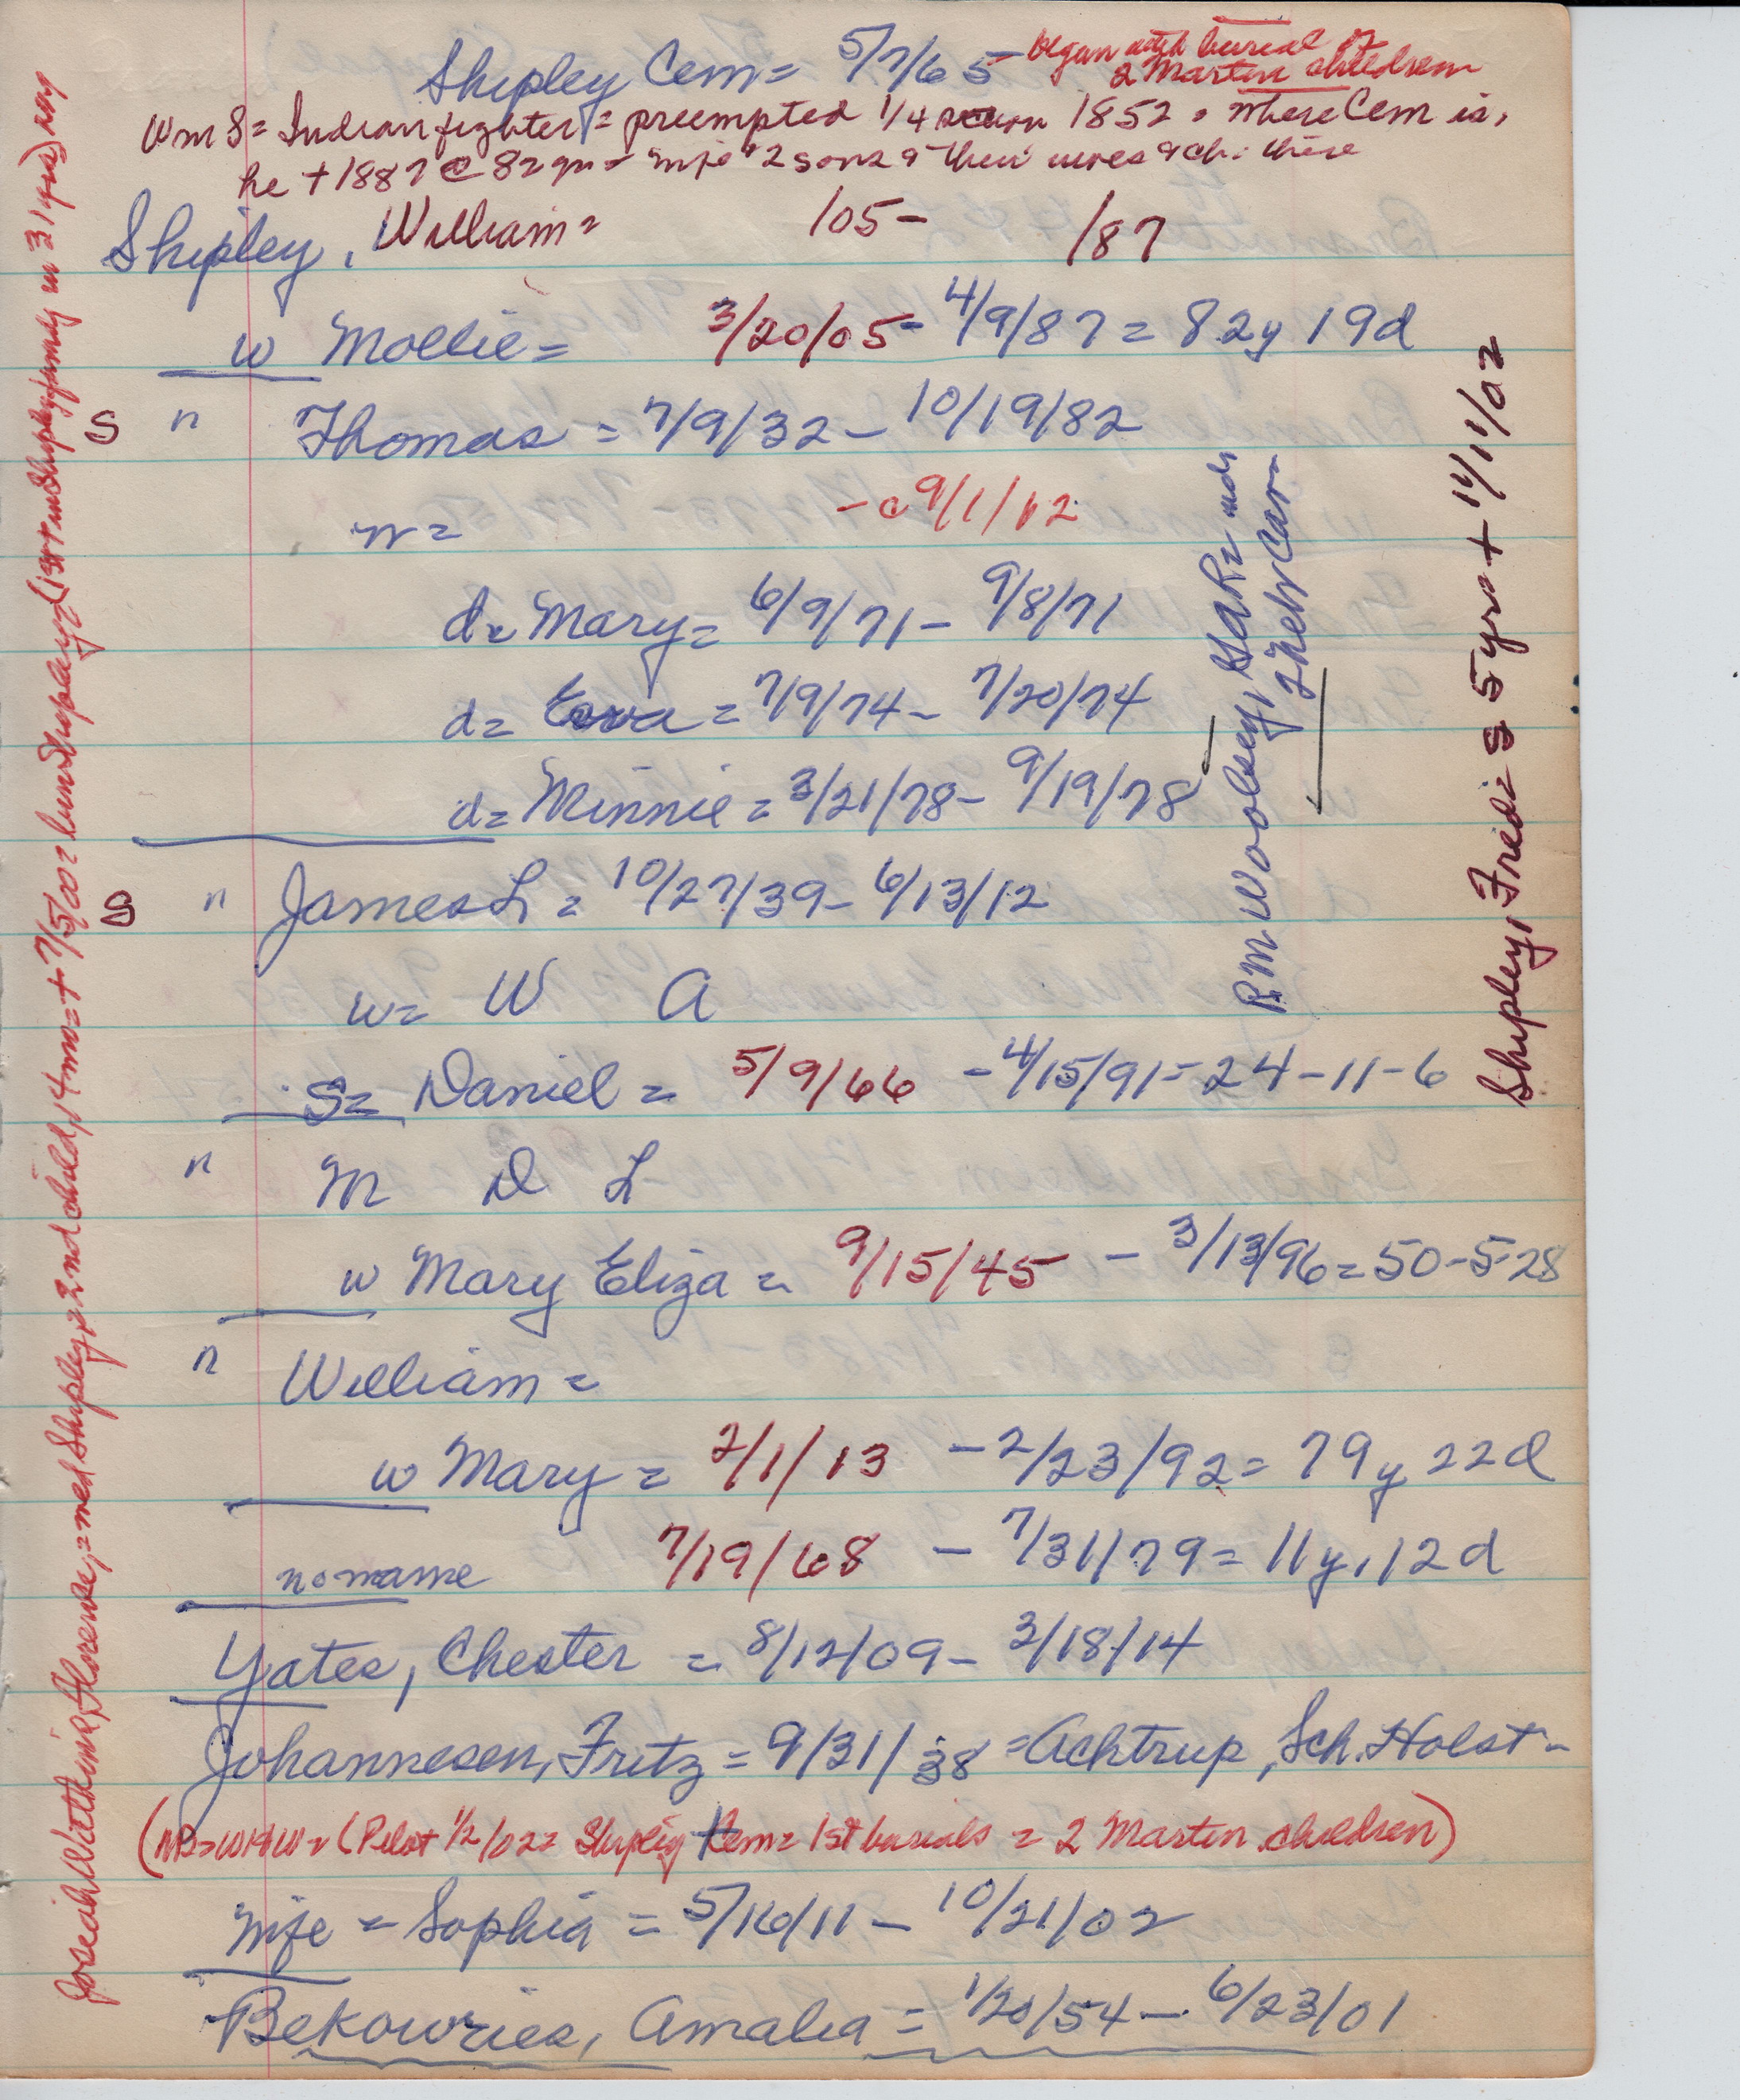 Shipley Cem = 5/7/65 - began with burial of
2 Martin children
Wm S = Indian fighter = preempted 1/4 section 1852 . where Cem is,
he + 1887 @ 82 yrs = wife 2 sons & their wives & ch. there
Shipley, William = /05 - /87
w Mollie = 3/20/05 - 4/9/87 = 82y 19d
S " Thomas = 7/9/32 - 10/19/82
w = - c 9/1/12
d = Mary = 6/9/71 - 9/8/71
d = Eova = 7/9/74 - 7/20/74
d = Minnie = 3/21/78 - 9/19/78
S " James L = 10/27/39 - 6/13/12
w = W A
S = Daniel = 5/9/66 - 4/15/91 = 24-11-6
" M D L
w Mary Eliza = 9/15/45 - 3/13/96 = 50-5-28
" William =
w Mary = 2/1/13 - 2/23/92 = 79y 22d
no name 7/19/68 - 7/31/79 = 11y, 12d
Yates, Chester = 8/12/09 - 3/18/14
Johannesen, Fritz = 9/31/38 = Achtrup, Sch. Holst -
(Pilot 1/2/02 = Shipley Cem = 1st burials = 2 Martin children)
wife = Sophia = 5/16/11 - 10/21/02
Bekowries, Amalia = 1/20/54 - 6/23/01
RM Woolsey,
Shipley, Fred = S 5 yrs + 11/1/02
Florence, = med Shipley, 2nd child, 14 mo = + 7/5/00 = bur Shipley